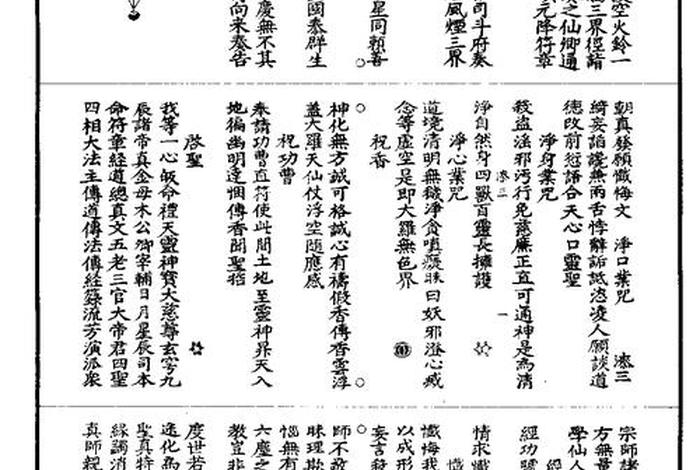 空火鈴一
三界徑詣
之仙卿通
元降符章
司斗府奏
風煙三界
星同賴善
國泰群生
慶無不其
向來奏告
朝真發願懺悔文 淨口業咒 添三
綺妄諂讒無兩舌悖辭訴詆恣凌人願談道
德改前愆語合天心口靈聖
淨身業咒
殺盜淫邪污行免慈廉正直可通神是爲清
淨自然身四獸百靈長擁護
淨心業咒
道境清明無穢淨貪嗔癡昧曰妖邪澄心滅
念等虛空是即大羅無色界
祝香
神化無方誠可格誠心有禱假香傳香雲浮
蓋大羅天仙仗浮空隨應感
祝功曹
奉請功曹直符使此間土地至靈神昇天入
地徧幽明達悃傳香聞聖指
啓聖
我等一心皈命禮天靈神寶大慈尊玄穹九
辰諸帝真金母木公卿宰輔日月星辰司本
命符章經道總真文五老三官大帝君四聖
四相大法主傳道傳法傳經籙流芳演派衆
宗師
方無
學仙人
經
經功
情求懺
懺
懺悔我
以成形
妄言
師不
昧理欺
惱無有
六塵之
教豈非
度世若
逵化爲
聖真特
緣謁消
真師